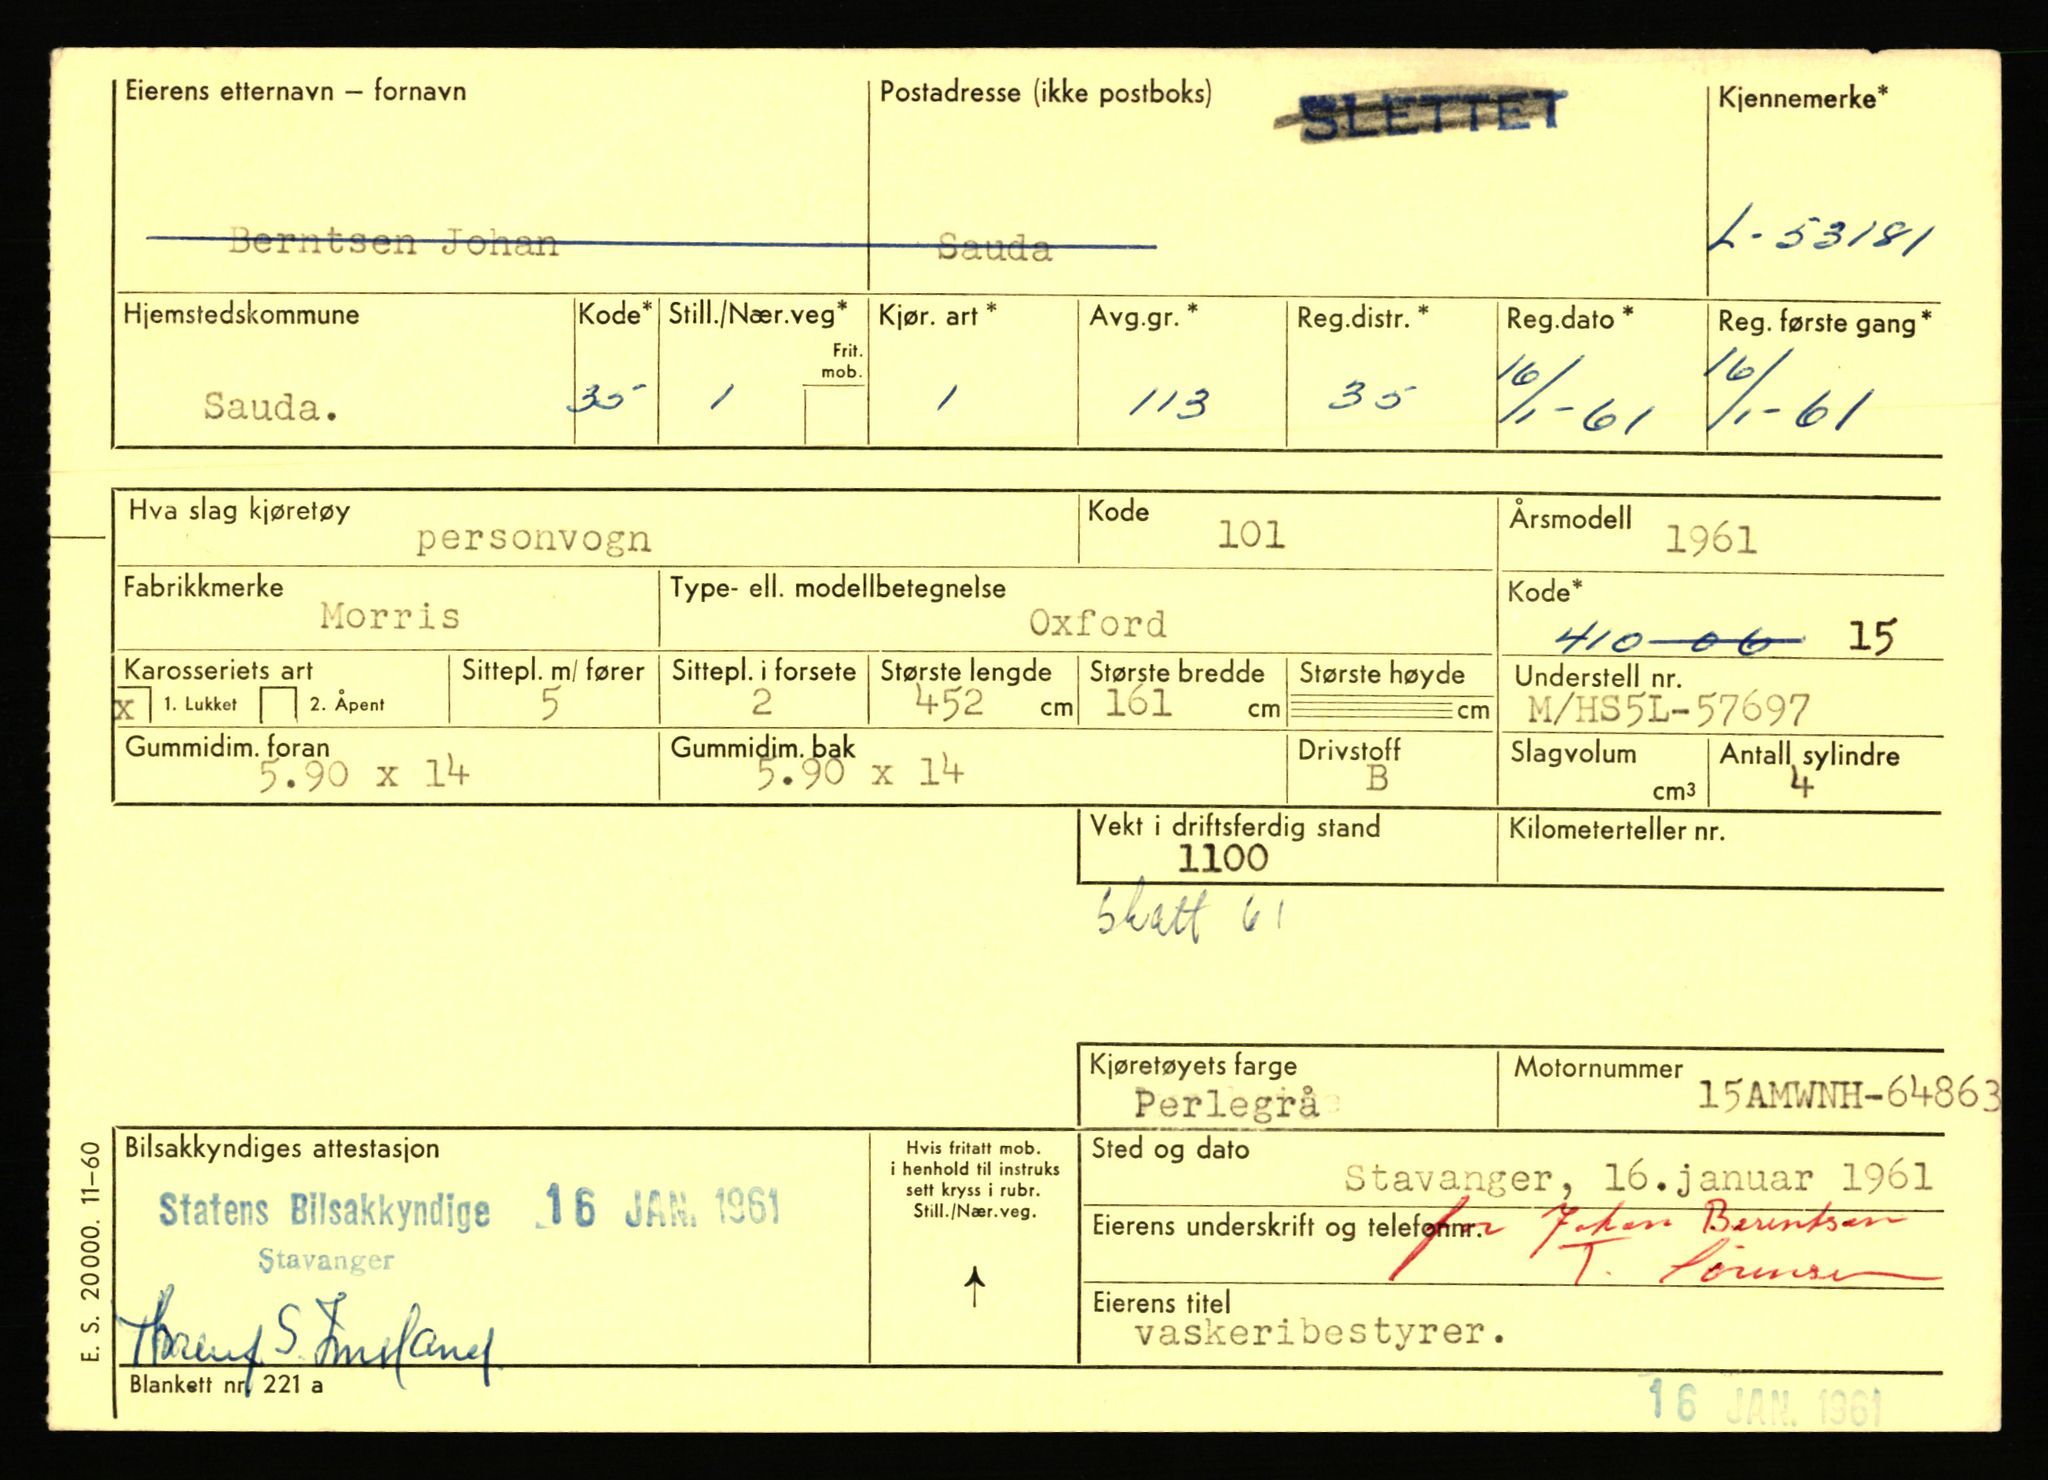 Eierens etternavn – fornavn
Postadresse (ikke postboks)
SLETTET
Kjennemerke*
Berntsen Johan
Sauda
L-53181
Hjemstedskommune
Kode*
Still./Nær.veg*
Frit.
mob.
Kjør. art *
Avg.gr. *
Reg.distr. *
Reg.dato *
Reg. første gang*
Sauda.
35
1
1
113
35
16/1-61
16/1-61
Hva slag kjøretøy
personvogn
Kode
101
Årsmodell
1961
Fabrikkmerke
Morris
Type- ell. modellbetegnelse
Oxford
Kode*
410-06 15
Karosseriets art
x 1. Lukket 2. Åpent
Sittepl. m/ fører
5
Sittepl. i forsete
2
Største lengde
452 cm
Største bredde
161 cm
Største høyde
cm
Understell nr.
M/HS5L-57697
Gummidim. foran
5.90 x 14
Gummidim. bak
5.90 x 14
Drivstoff
B
Slagvolum
cm³
Antall sylindre
4
Vekt i driftsferdig stand
1100
Kilometerteller nr.
Skatt 61
Kjøretøyets farge
Perlegrå
Motornummer
15AMWNH-64863
Bilsakkyndiges attestasjon
Statens Bilsakkyndige 16 JAN. 1961
Stavanger
Hvis fritatt mob.
i henhold til instruks
sett kryss i rubr.
Still./Nær.veg.
Sted og dato
Stavanger, 16.januar 1961
Eierens underskrift og telefonnr.
for Johan Berentsen
T. Sørensen
Eierens titel
vaskeribestyrer.
E. S. 20000. 11–60
Blankett nr. 221 a
16 JAN. 1961